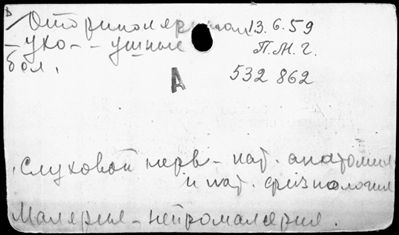 Оториноляринголог. 13.6.59
- ухо - - ушные П.М.Г.
бол. 532 862
А
Слуховой нерв - пат. анатомия
и пат. физиология
Малярия - нейромалярия.